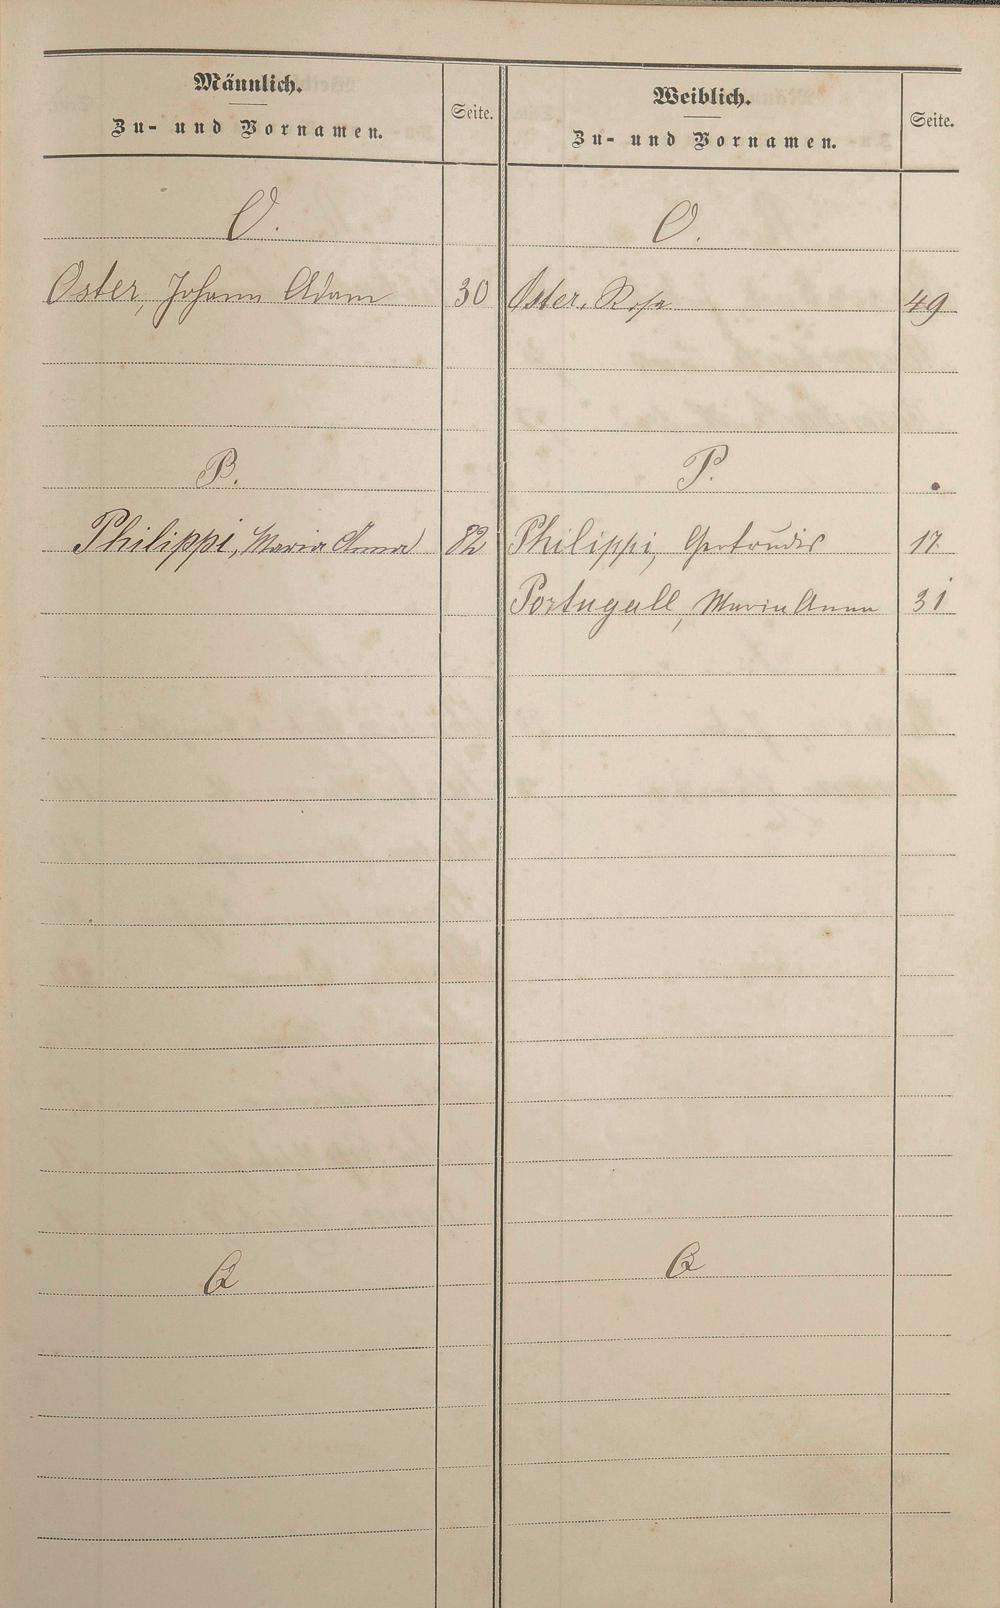 Männlich.
Zu- und Vornamen.
Seite.
O.
Oster, Johann Adam 30
P.
Philippi, Maria Anna 82
Q
Weiblich.
Zu- und Vornamen.
Seite.
O.
Oster, Rosa 49
P.
Philippi, Gertrudis 17
Portugall, Maria Anna 31
Q